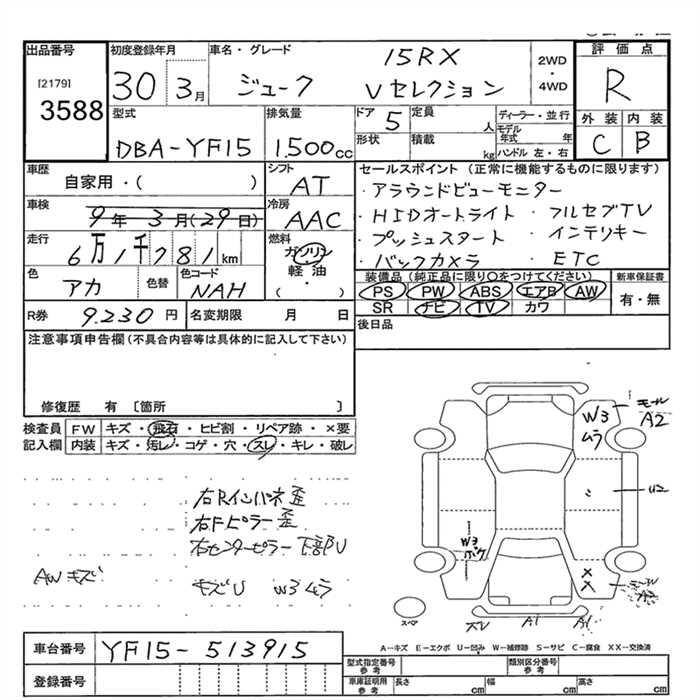 出品番号
[2179]
3588
初度登録年月
30 3月
車名・グレード
15RX
ジューク Vセレクション
2WD
・
4WD
評価点
R
外装 内装
C B
型式
DBA-YF15
排気量
1.500cc
ドア 5
定員 人
形状
積載 kg
ディーラー・並行
モデル年式 年
ハンドル 左・右
車歴
自家用・( )
シフト
AT
車検
9年 3月(29日)
冷房
AAC
走行
6万1千781km
燃料
ガソリン
軽油
( ・ )
色
アカ
色替
色コード
NAH
R券 9.230円
名変期限 月 日
セールスポイント(正常に機能するものに限ります)
・アラウンドビューモニター
・HIDオートライト ・フルセグTV
・プッシュスタート ・インテリキー
・バックカメラ ・ETC
装備品(純正品に限り○をつけてください)
PS PW ABS エアB AW
SR ナビ TV カワ
新車保証書
有・無
後日品
注意事項申告欄(不具合内容等は具体的に記入して下さい)
修復歴 有 〔箇所 〕
検査員記入欄
FW キズ・飛石・ヒビ割・リペア跡・×要
内装 キズ・汚レ・コゲ・穴・スレ・キレ・破レ
右Rインパネ歪
右Fピラー歪
右センターピラー下部U
AWキズ
キズU W3ムラ
W3
ムラ
モール
A2
U2
W3
ボケ
×
×
モール
A2
スペア
A1
A1
A-キズ E-エクボ U-凹み W-補修跡 S-サビ C-腐食 XX-交換済
車台番号 YF15-513915
登録番号
型式指定番号 参考
類別区分番号 参考
車庫証明用 参考
長さ cm
幅 cm
高さ cm